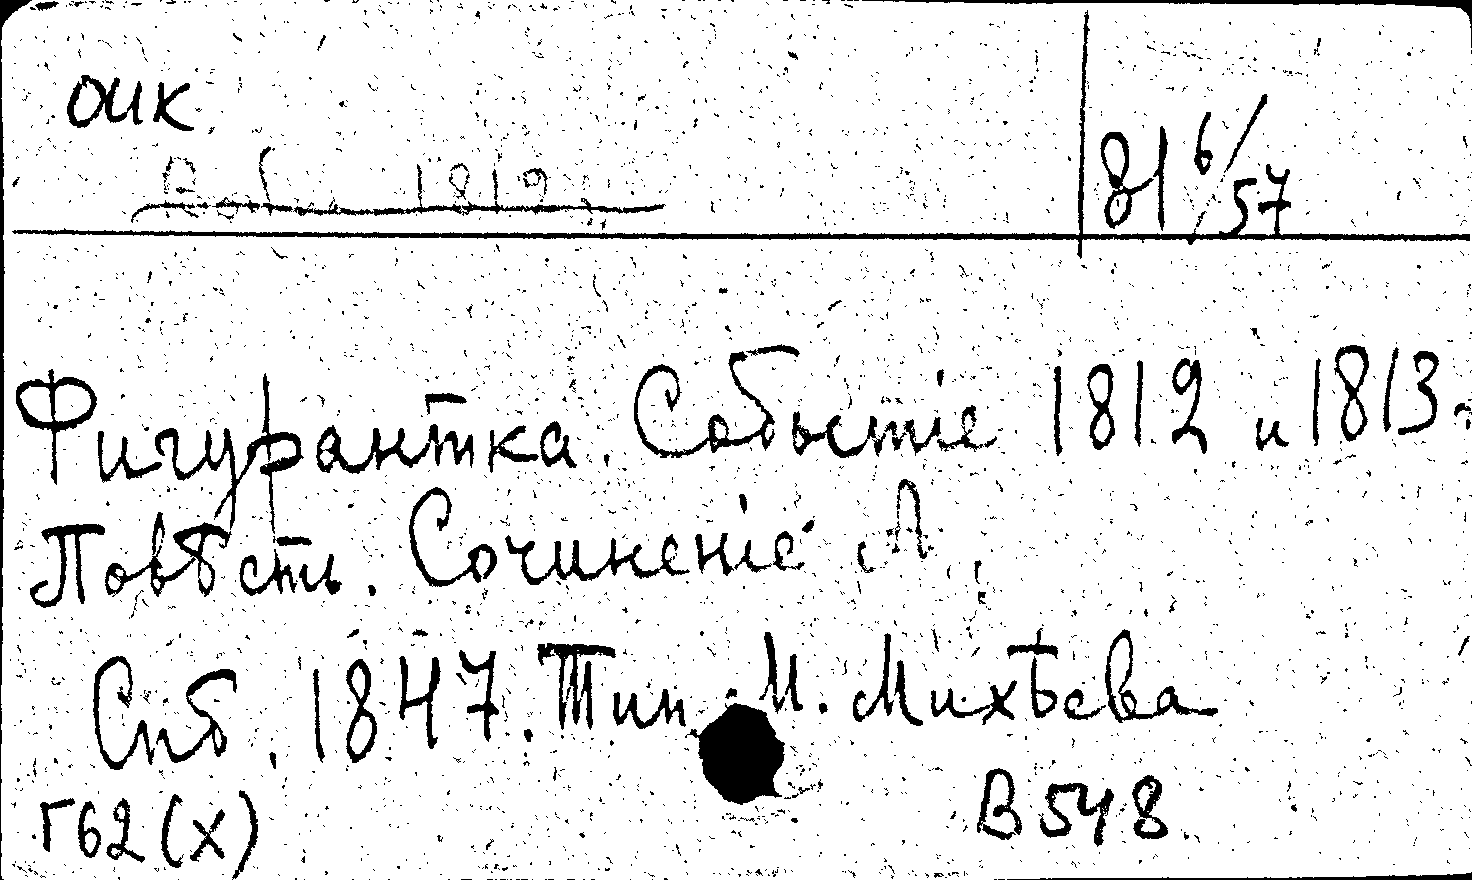 оик
81 6/57
1812
Фигурантка. Событіе 1812 и 1813.
Повѣсть. Сочиненіе А.
Спб. 1847. Тип. И. Михѣева
Г62(х)
В548